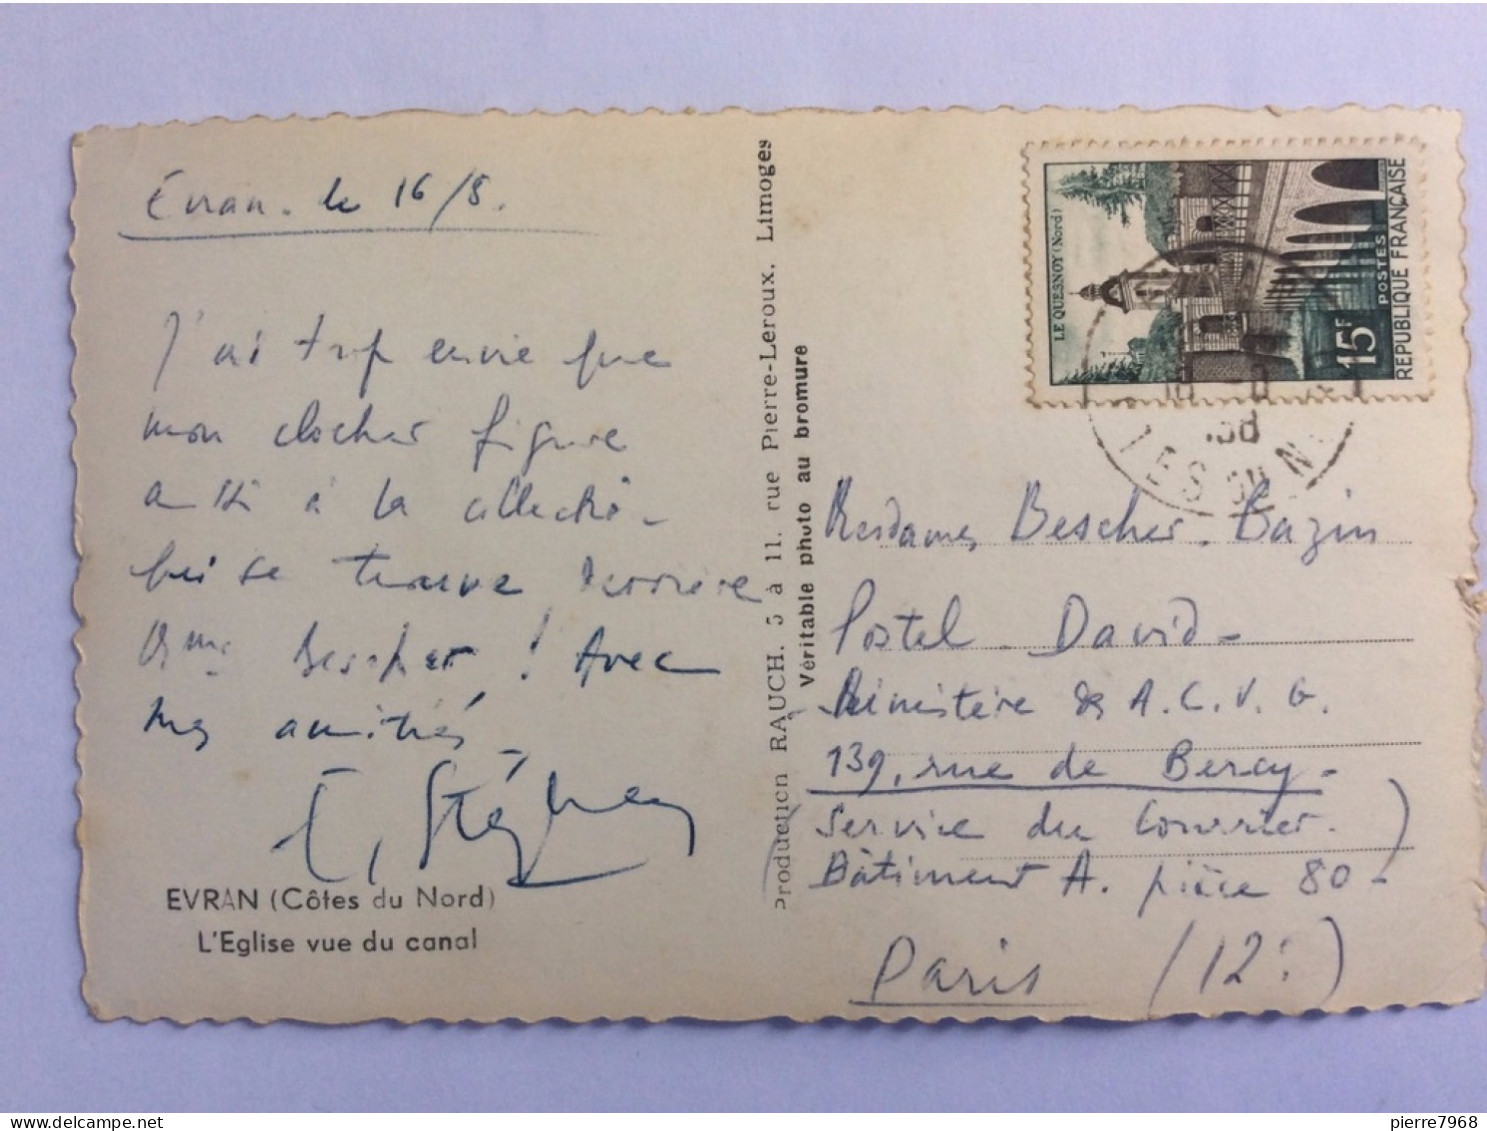 Evran. le 16/8.
J'ai trop envie que
mon clocher figure
aussi à la collectio-
qui se trouve derrière
Mme Bescher ! Avec
mes amitiés -
EVRAN (Côtes du Nord)
L'Eglise vue du canal
Production RAUCH. 5 à 11. rue Pierre-Leroux. Limoges
Véritable photo au bromure
LE QUESNOY (Nord)
15F
POSTES
REPUBLIQUE FRANÇAISE
Mesdames Bescher. Bazin
Postel - David -
Ministère des A.C.V.G.
139, rue de Bercy -
(Service du Courrier. )
Bâtiment A. pièce 80 -
Paris (12e)
pierre7968